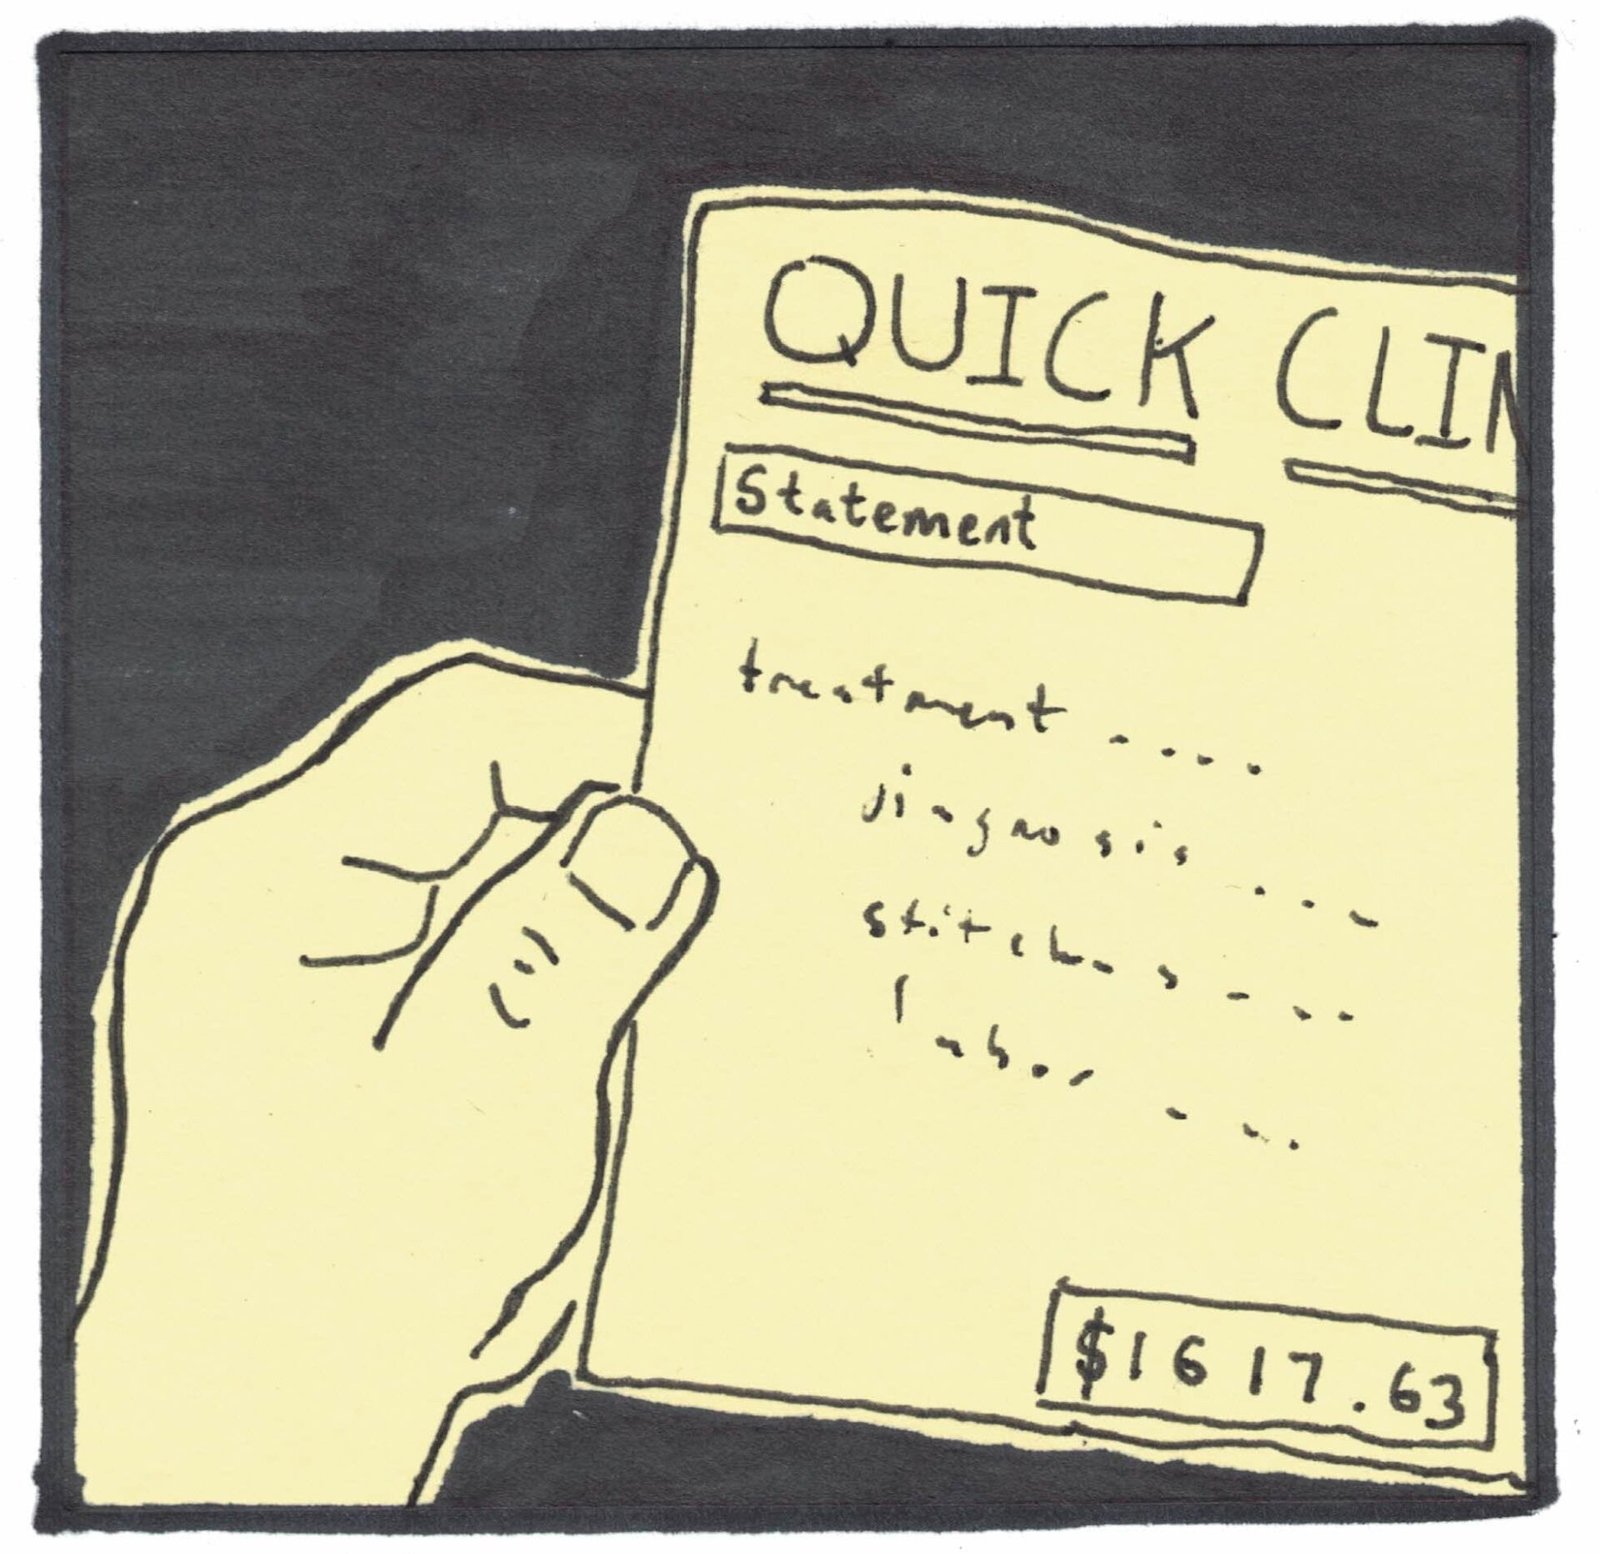 QUICK CLIN
Statement
treatment ....
jiagnosis ...
stitches ...
labor ...
$1617.63